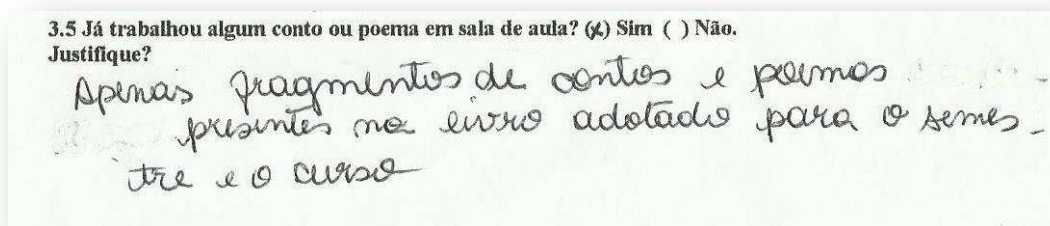 3.5 Já trabalhou algum conto ou poema em sala de aula? (x) Sim ( ) Não.
Justifique?
Apenas fragmentos de contos e poemas
presentes no livro adotado para o semes-
tre e o curso